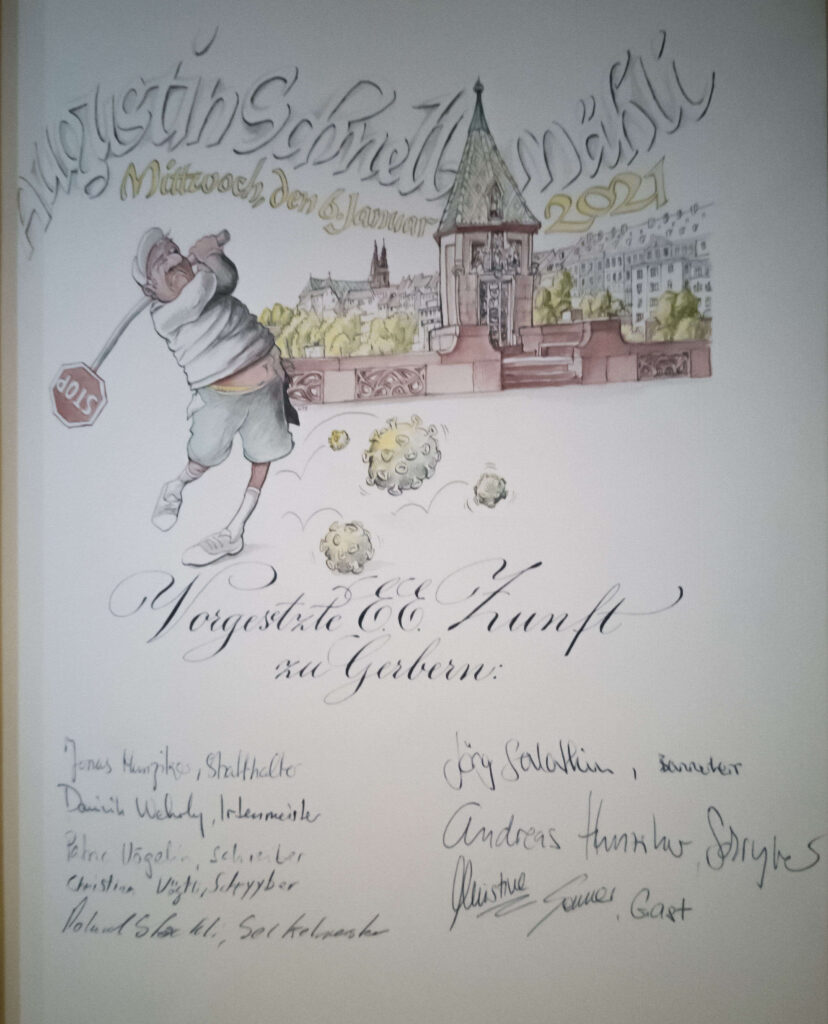 Augustin Schnellmähli
Mittwoch, den 6. Januar 2021
STOP
Vorgestzte E.E. Zunft
zu Gerbern:
Jonas, Statthalter
Dominik, Irtenmeister
Vögelin, Schreiber
Christian Vögtli, Schryyber
Roland Stöckli, Seckelmeister
Jörg Salathin, Bannerherr
Andreas, Schryber
Christine, Gast